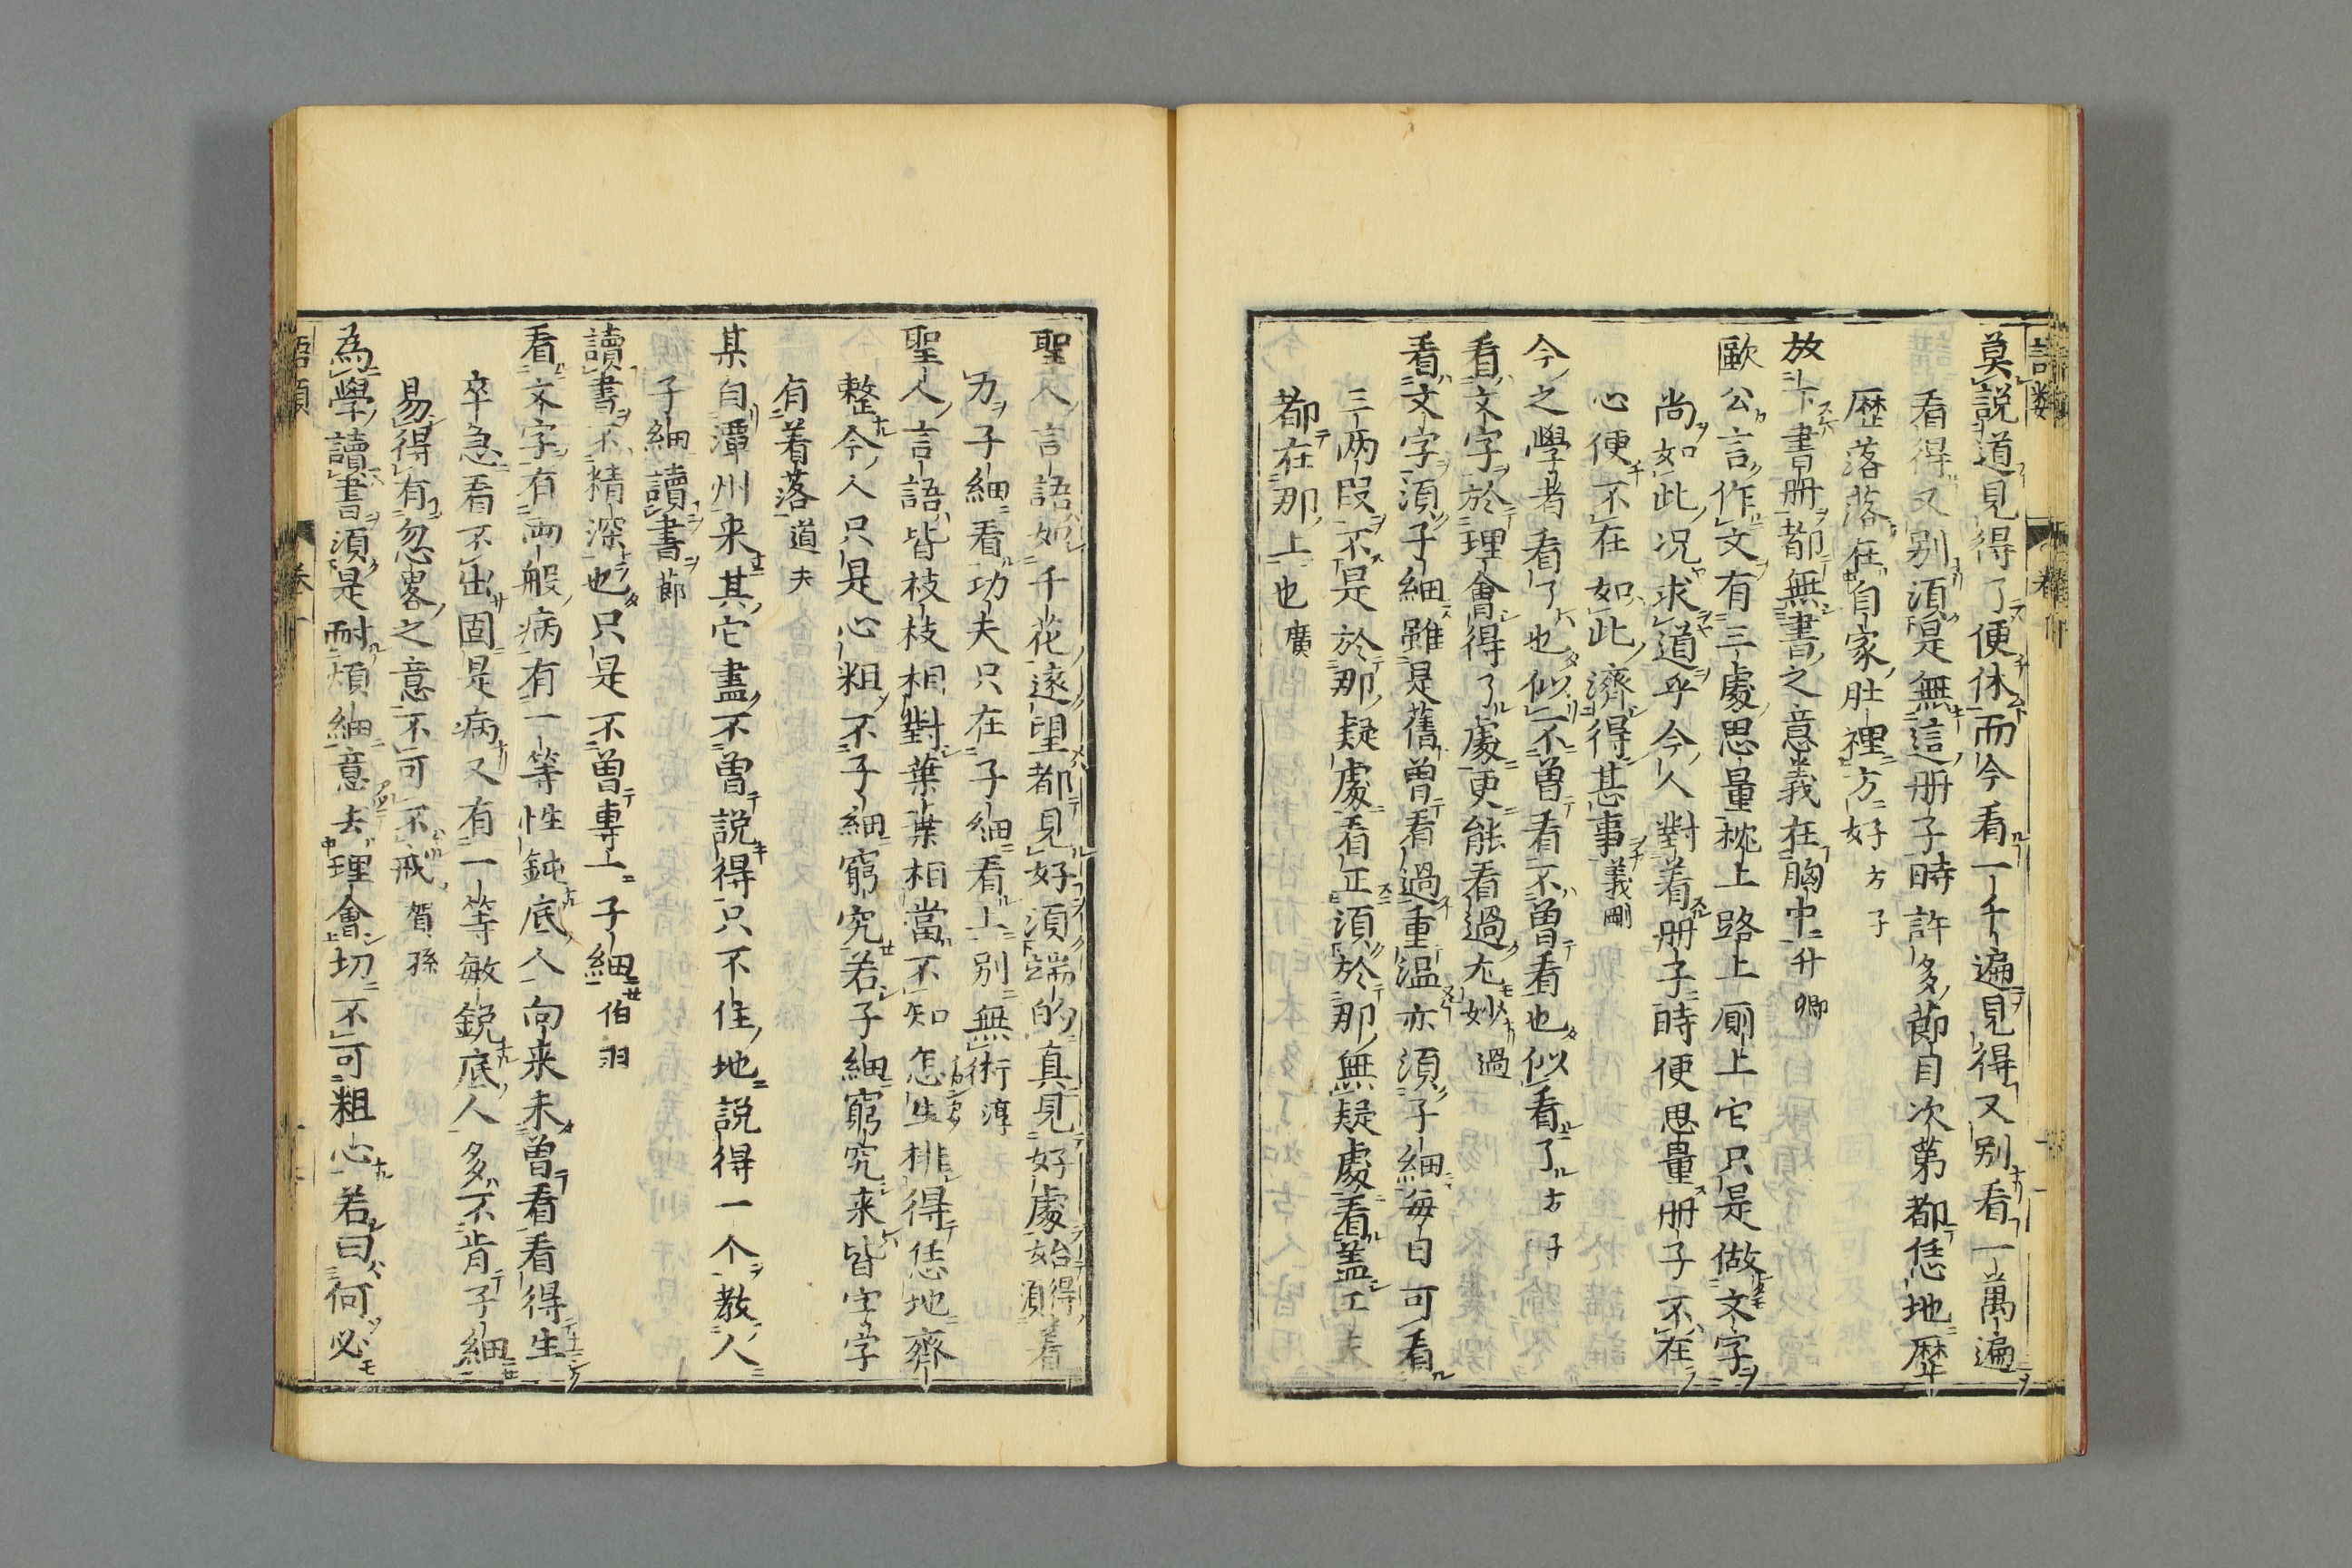 莫説道見得了便休而今看一千遍見得又别看一萬遍
看得又别須是無這册子時許多節目次第都恁地歴
歴落落在自家肚裡方好方子
放下書册都無書之意義在胸中升卿
歐公言作文有三處思量枕上路上厠上它只是做文字
尚如此况求道乎今人對着册子時便思量册子不在
心便不在如此濟得甚事義剛
今之學者看了也似不曽看不曽看也似看了方子
看文字於理會得了處更能看過尤妙過
看文字須子細雖是舊曽看過重温亦須子細毎日可看
三兩段不是於那疑處看正須於那無疑處看盖工
都在那上也廣
聖人言語如千花遠望都見好須端的真見好處始得須着
力子細看功夫只在子細看上别無術淳
聖人言語皆枝枝相對葉葉相當不知怎生排得恁地齊
整今人只是心粗不子細窮究若子細窮究来皆字字
有着落道夫
某自潭州来其它盡不曽説得只不住地説得一个教人
子細讀書節
讀書不精深也只是不曽専一子細伯羽
看文字有両般病有一等性鈍底人向来未曽看看得生
卒急看不出固是病又有一等敏鋭底人多不肯子細
易得有忽畧之意不可不戒賀孫
為學讀書須是耐煩細意去理會切不可粗心若曰何必